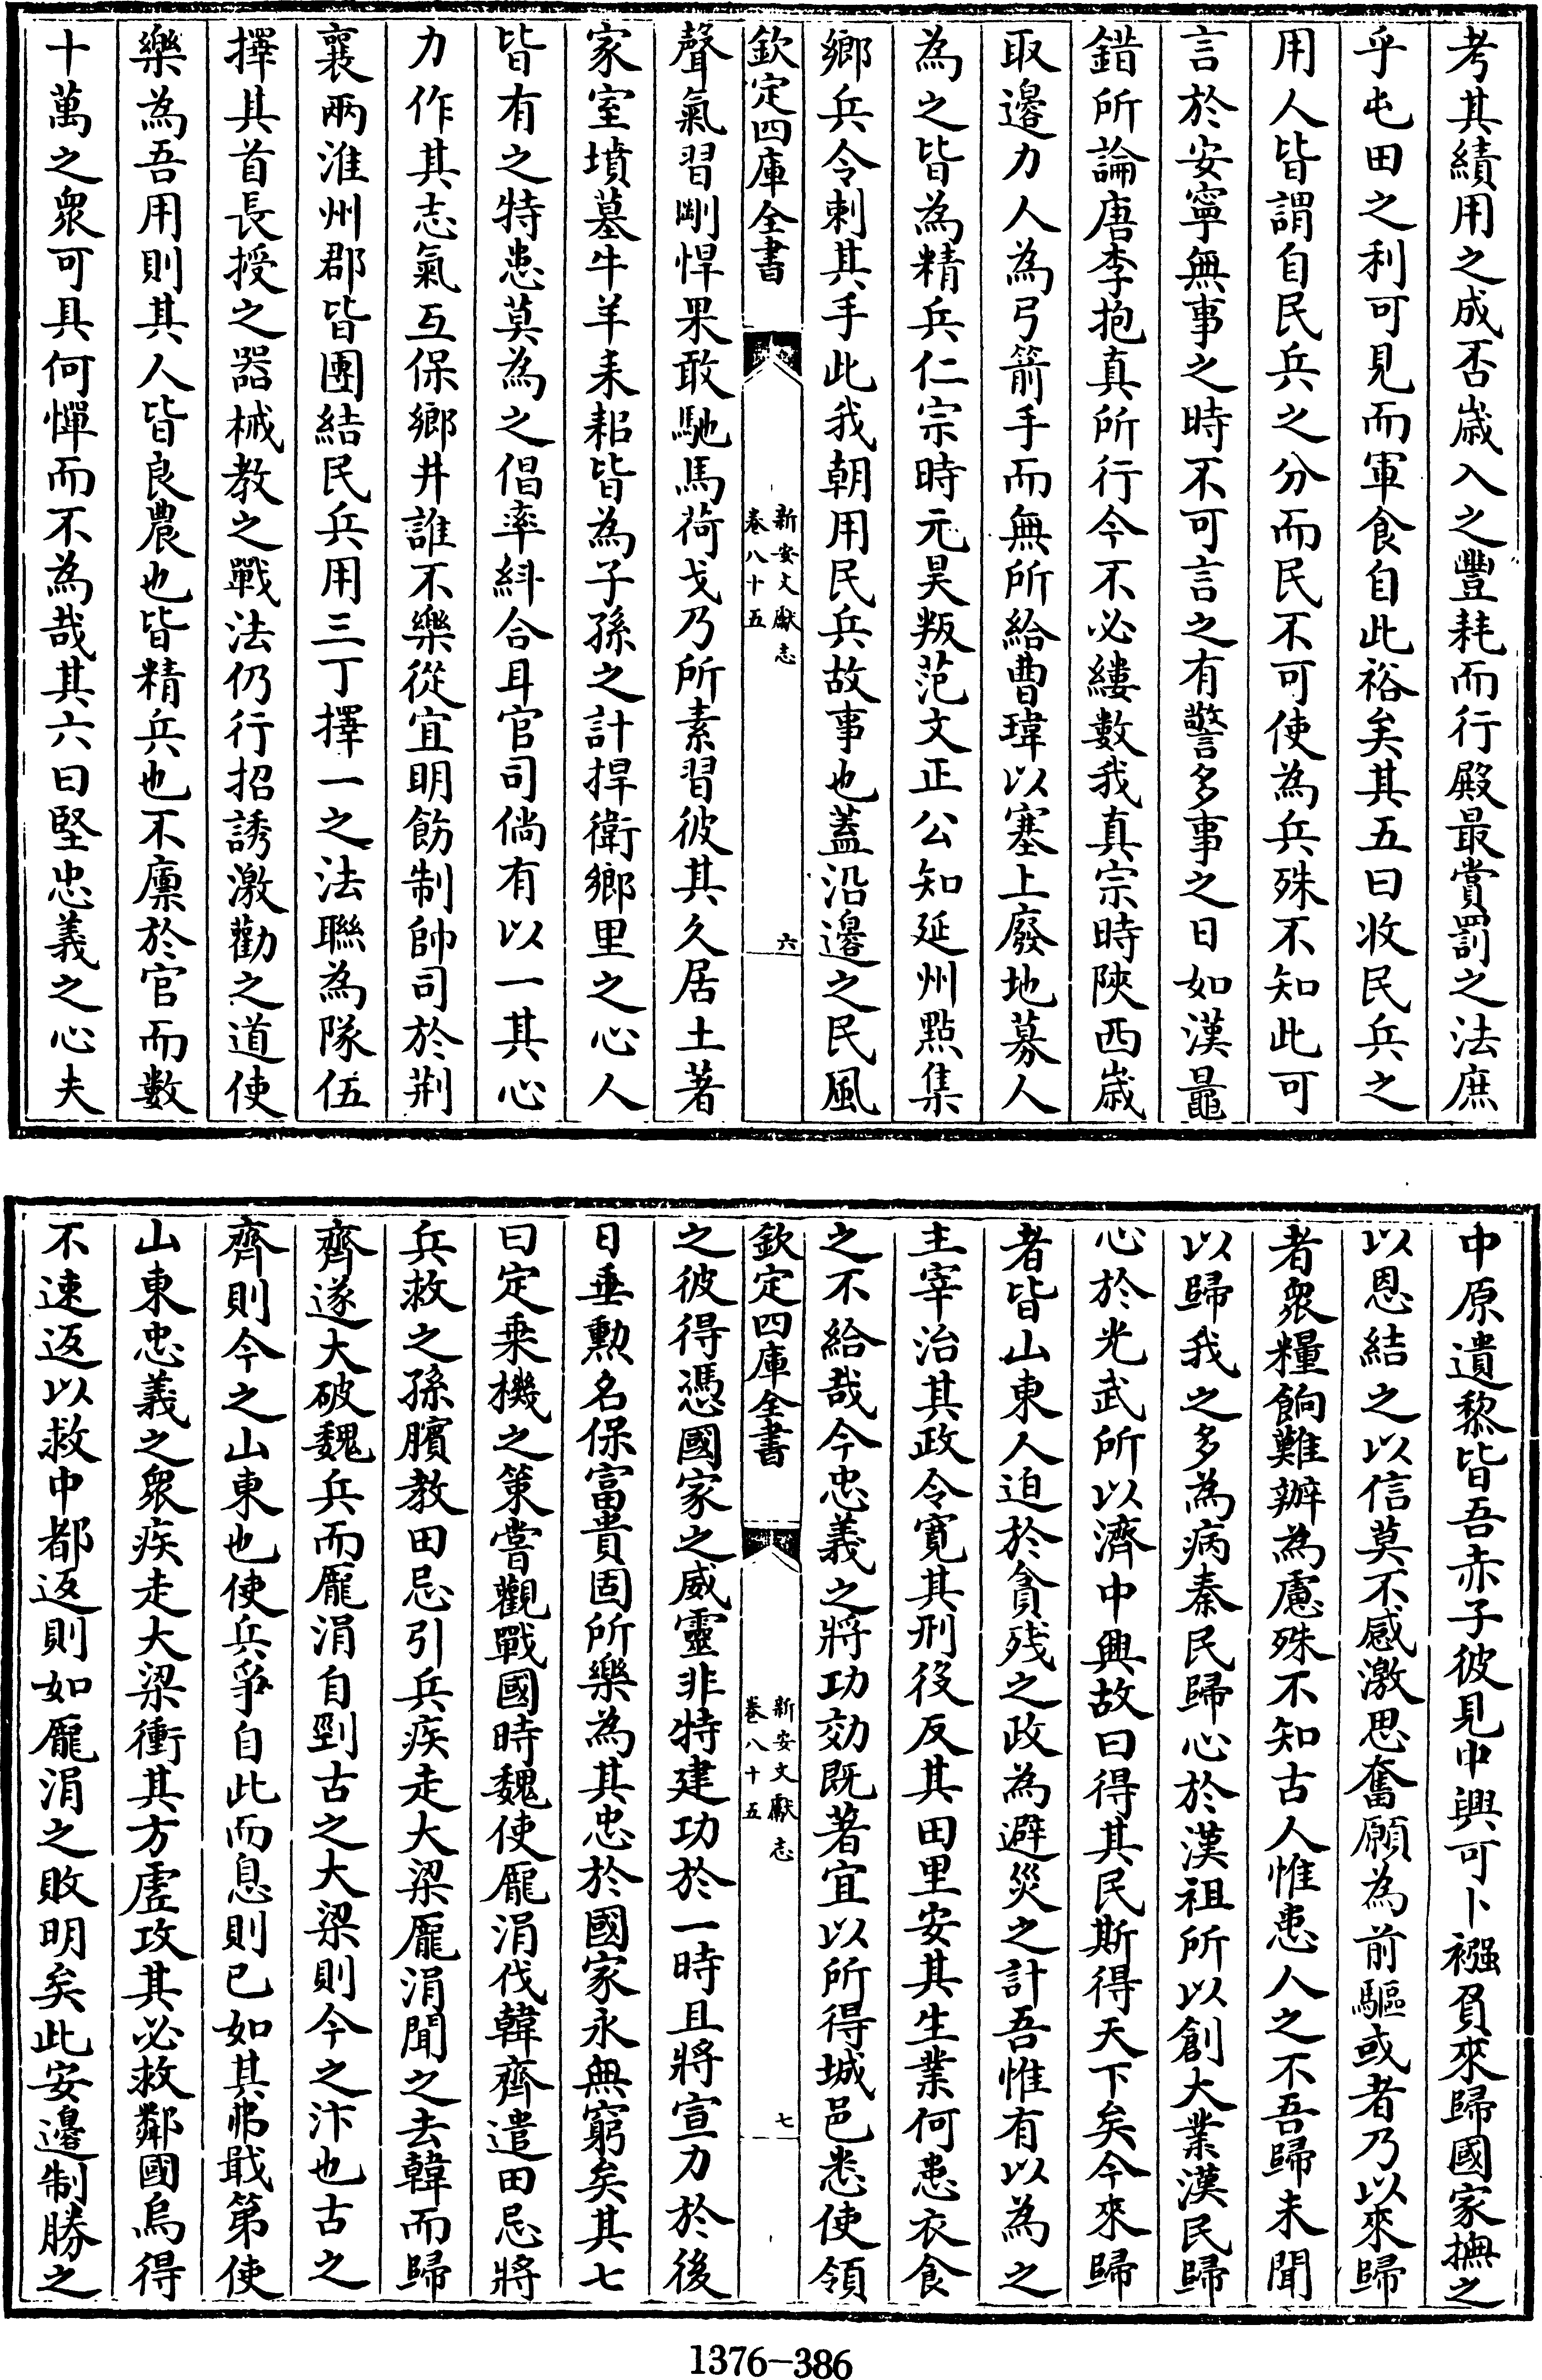 考其績用之成否嵗入之豐耗而行殿最賞罰之法庶
乎屯田之利可見而軍食自此裕矣其五曰收民兵之
用人皆謂自民兵之分而民不可使為兵殊不知此可
言於安寧無事之時不可言之有警多事之日如漢鼂
錯所論唐李抱真所行今不必縷數我真宗時陜西嵗
取邊力人為弓箭手而無所給曹瑋以塞上廢地募人
為之皆為精兵仁宗時元昊叛范文正公知延州㸃集
鄉兵令刺其手此我朝用民兵故事也蓋沿邊之民風
欽定四庫全書
新安文獻志
卷八十五
六
聲氣習剛悍果敢馳馬荷戈乃所素習彼其久居土著
家室墳墓牛羊耒耜皆為子孫之計捍衛鄉里之心人
皆有之特患莫為之倡率糾合耳官司倘有以一其心
力作其志氣互保鄉井誰不樂從宜明飭制帥司於荆
襄兩淮州郡皆團結民兵用三丁擇一之法聯為隊伍
擇其首長授之器械教之戰法仍行招誘激勸之道使
樂為吾用則其人皆良農也皆精兵也不廩於官而數
十萬之衆可具何憚而不為哉其六曰堅忠義之心夫
中原遺黎皆吾赤子彼見中興可卜襁負來歸國家撫之
以恩結之以信莫不感激思奮願為前驅或者乃以來歸
者衆糧餉難辦為慮殊不知古人惟患人之不吾歸未聞
以歸我之多為病秦民歸心於漢祖所以創大業漢民歸
心於光武所以濟中興故曰得其民斯得天下矣今來歸
者皆山東人迫於貪殘之政為避災之計吾惟有以為之
主宰治其政令寛其刑役反其田里安其生業何患衣食
之不給哉今忠義之將功効既著宜以所得城邑悉使領
欽定四庫全書
新安文獻志
卷八十五
七
之彼得憑國家之威靈非特建功於一時且將宣力於後
日垂勲名保富貴固所樂為其忠於國家永無窮矣其七
曰定乗機之策嘗觀戰國時魏使龐涓伐韓齊遣田忌將
兵救之孫臏教田忌引兵疾走大梁龐涓聞之去韓而歸
齊遂大破魏兵而龐涓自剄古之大梁則今之汴也古之
齊則今之山東也使兵爭自此而息則已如其弗戢第使
山東忠義之衆疾走大梁衝其方虛攻其必救鄰國烏得
不速返以救中都返則如龐涓之敗明矣此安邊制勝之
1376-386